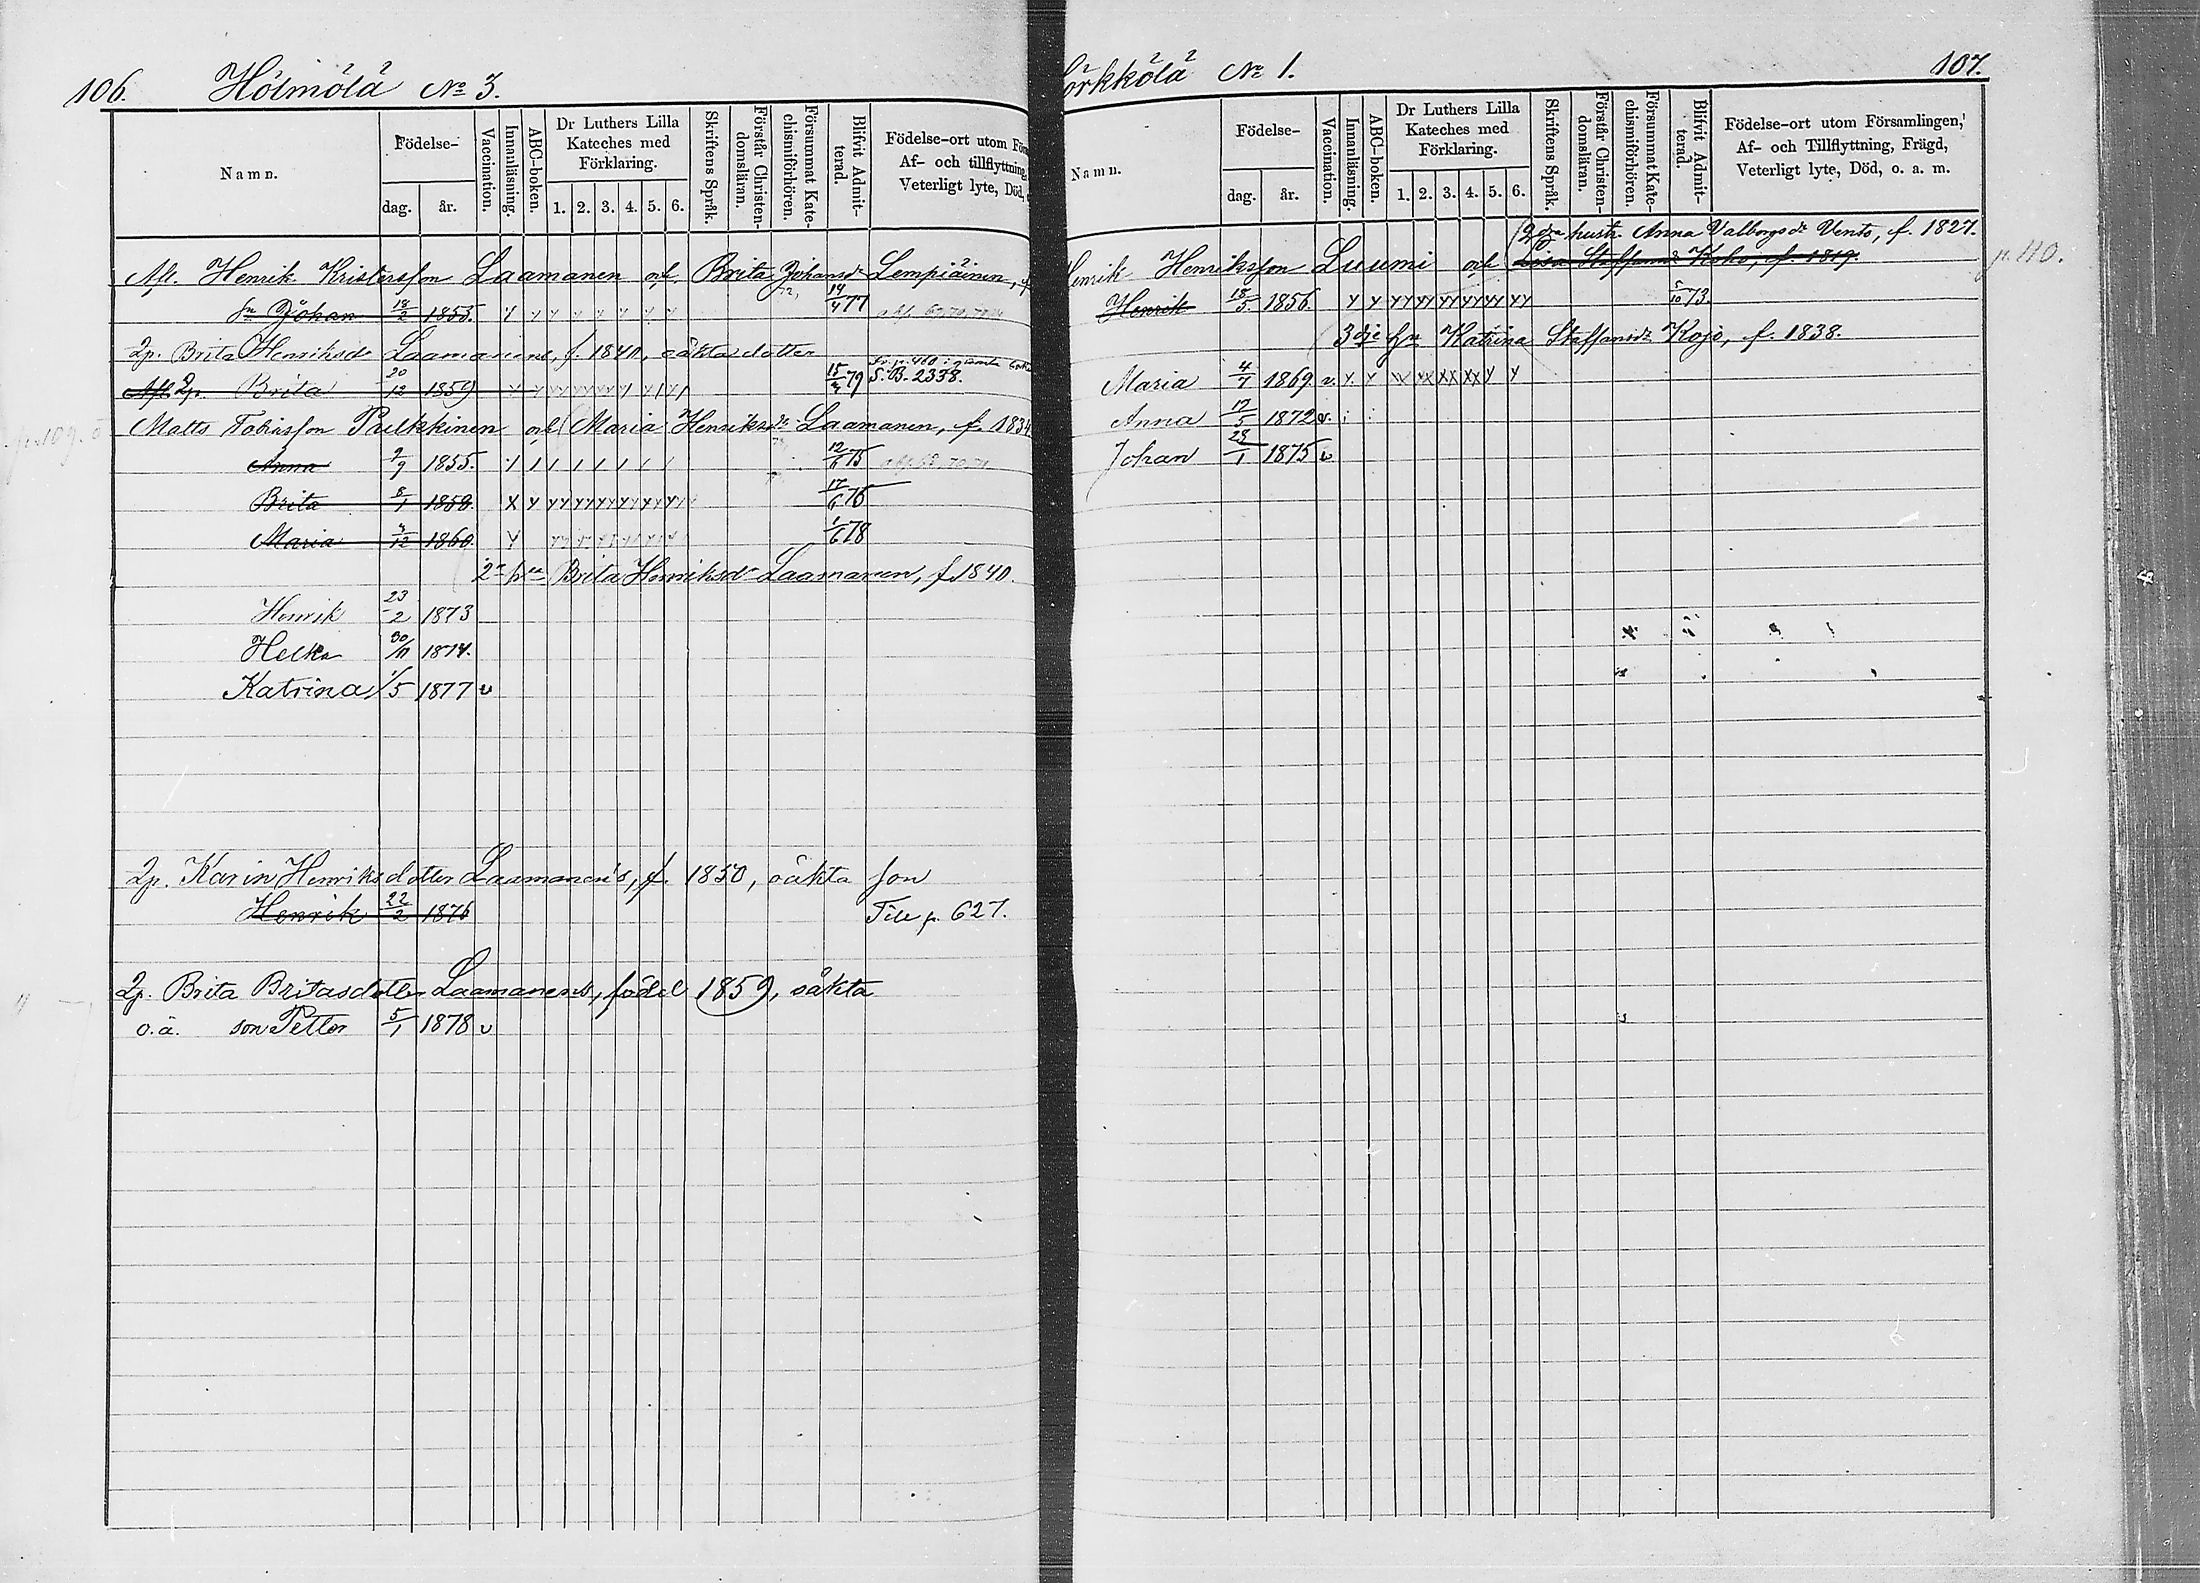 106. Hölmölä No 3.
Namn.
Födelse-
dag. år.
Vaccination.
Innanläsning.
ABC-boken.
Dr Luthers Lilla Kateches med Förklaring.
1. 2. 3. 4. 5. 6.
Skriftens Språk.
Förstår Christendomsläran.
Försummat Katechismiförhören.
Blifvit Admitterad.
Födelse-ort utom
Af- och tillflyttning,
Veterligt lyte, Död,
Afl. Henrik Kristersson Laamanen och Brita Johansdr Lempiäinen,
sn Johan 18/2 1855. 77
Lp. Brita Henriksdr Laamanens, f. 1840, oäkta dotter
Afl. Lp. Brita 20/12 1859 79 S. B. 2338.
Matts Tobiasson Pulkkinen och (Maria Henriksdr Laamanen, f. 1834
Anna 9/9 1855. 12/6 75
Brita 8/1 1858. 17/6 76
Maria 1860. 1/6 78
Brita Henriksdr Laamanen, f. 1840.
Henrik 23/2 1873
Helka 30/11 1874.
Katrina 1/5 1877 v
Lp. Karin Henriksdotter Laamanen's, f. 1850, oäkta son
Henrik 22/2 1876 Till p. 627.
Lp. Brita Britasdotter Laamanens, född 1859, oäkta
o.ä. son Petter 5/1 1878 v
örkkölä No 1. 107.
Namn.
Födelse-
dag. år.
Vaccination.
Innanläsning.
ABC-boken.
Dr Luthers Lilla Kateches med Förklaring.
1. 2. 3. 4. 5. 6.
Skriftens Språk.
Förstår Christendomsläran.
Försummat Katechismiförhören.
Blifvit Admitterad.
Födelse-ort utom Församlingen,
Af- och Tillflyttning, Frägd,
Veterligt lyte, Död, o. a. m.
(2dra hustr. Anna Valborgsdr Vento, f. 1827.
Henrik Henriksson Luumi och Lisa Staffansdr Koho, f. 1819. p. 110.
Henrik 18/5 1856. 5/10 73.
(3dje hu Katrina Staffansdr Kojo, f. 1838.
Maria 4/7 1869 v.
Anna 17/5 1872 v.
Johan 29/1 1875 v